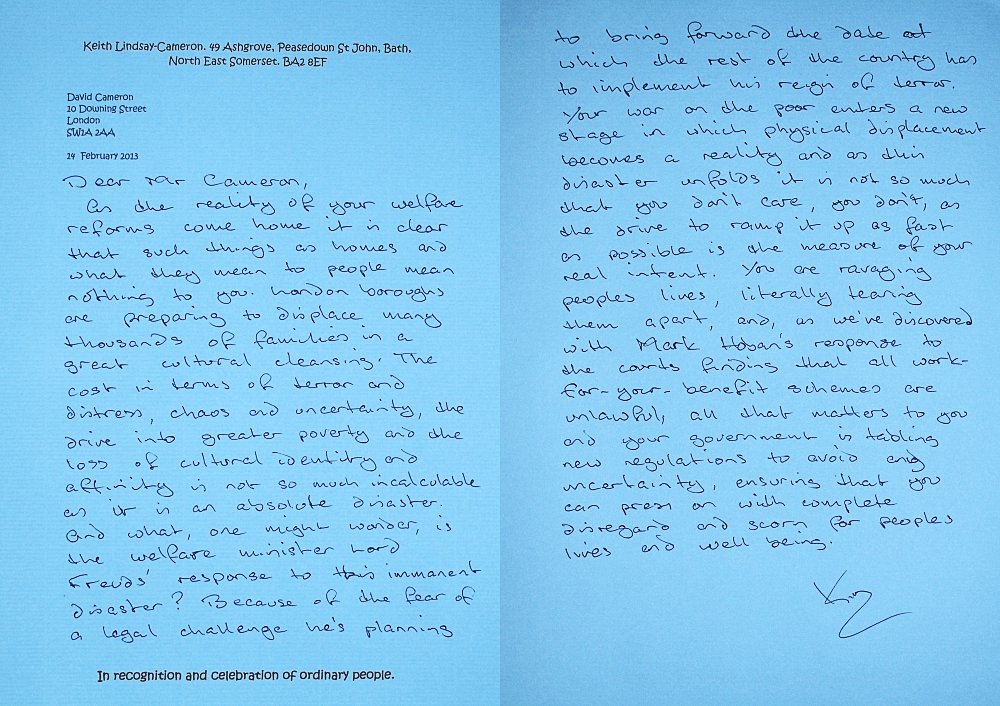 Keith Lindsay-Cameron. 49 Ashgrove, Peasedown St John, Bath,
North East Somerset. BA2 8EF
David Cameron
10 Downing Street
London
SW1A 2AA
14 February 2013
Dear Mr Cameron,
As the reality of your welfare
reforms come home it is clear
that such things as homes and
what they mean to people mean
nothing to you. London boroughs
are preparing to displace many
thousands of families in a
great cultural cleansing. The
cost in terms of terror and
distress, chaos and uncertainty, the
drive into greater poverty and the
loss of cultural identity and
affinity is not so much incalculable
as it is an absolute disaster.
And what, one might wonder, is
the welfare minister Lord
Freuds' response to this immanent
disaster? Because of the fear of
a legal challenge he's planning
In recognition and celebration of ordinary people.
to bring forward the date at
which the rest of the country has
to implement his reign of terror.
Your war on the poor enters a new
stage in which physical displacement
becomes a reality and as this
disaster unfolds it is not so much
that you don't care, you don't, as
the drive to ramp it up as fast
as possible is the measure of your
real intent. You are ravaging
peoples lives, literally tearing
them apart, and, as we've discovered
with Mark Hoban's response to
the courts finding that all work-
for-your-benefit schemes are
unlawful, all that matters to you
and your government is tabling
new regulations to avoid any
uncertainty, ensuring that you
can press on with complete
disregard and scorn for peoples
lives and well being.